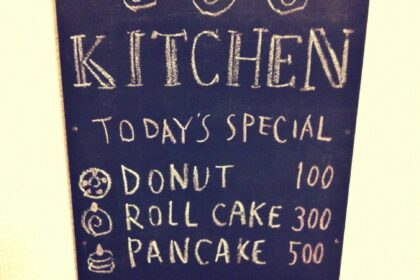 KITCHEN
TODAY'S SPECIAL
DONUT 100
ROLL CAKE 300
PANCAKE 500